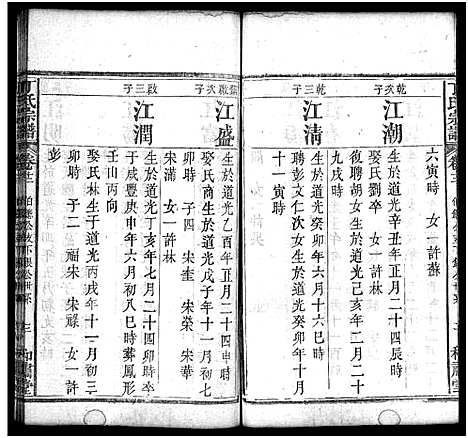 丁氏宗譜
卷三
六寅時 女一許蘇
乾次子
江潮
生於道光正月二十四辰時
娶氏劉卒
復聘胡女生於道光己亥年二月二十
九戌時
乾三子
江清
生於道光癸卯年六月十六巳時
聘彭文仁次女生於道光癸卯年二月
十一寅時
啟次子
江盛
生於道光乙酉年正月二十四申時
娶氏商生於道光戊子年十一月初七
卯時 子四 宋奎 宋榮 宋華
宋滿 女一許林
啟三子
江潤
生於道光丁亥年七月二十四卯時卒
于咸豐庚申年六月初八巳時葬鳳形
壬山丙向
娶氏林生于道光丙戌年十一月初三
卯時 子二 宋福 宋祿 女一許
彭
丁氏宗譜
卷三
三